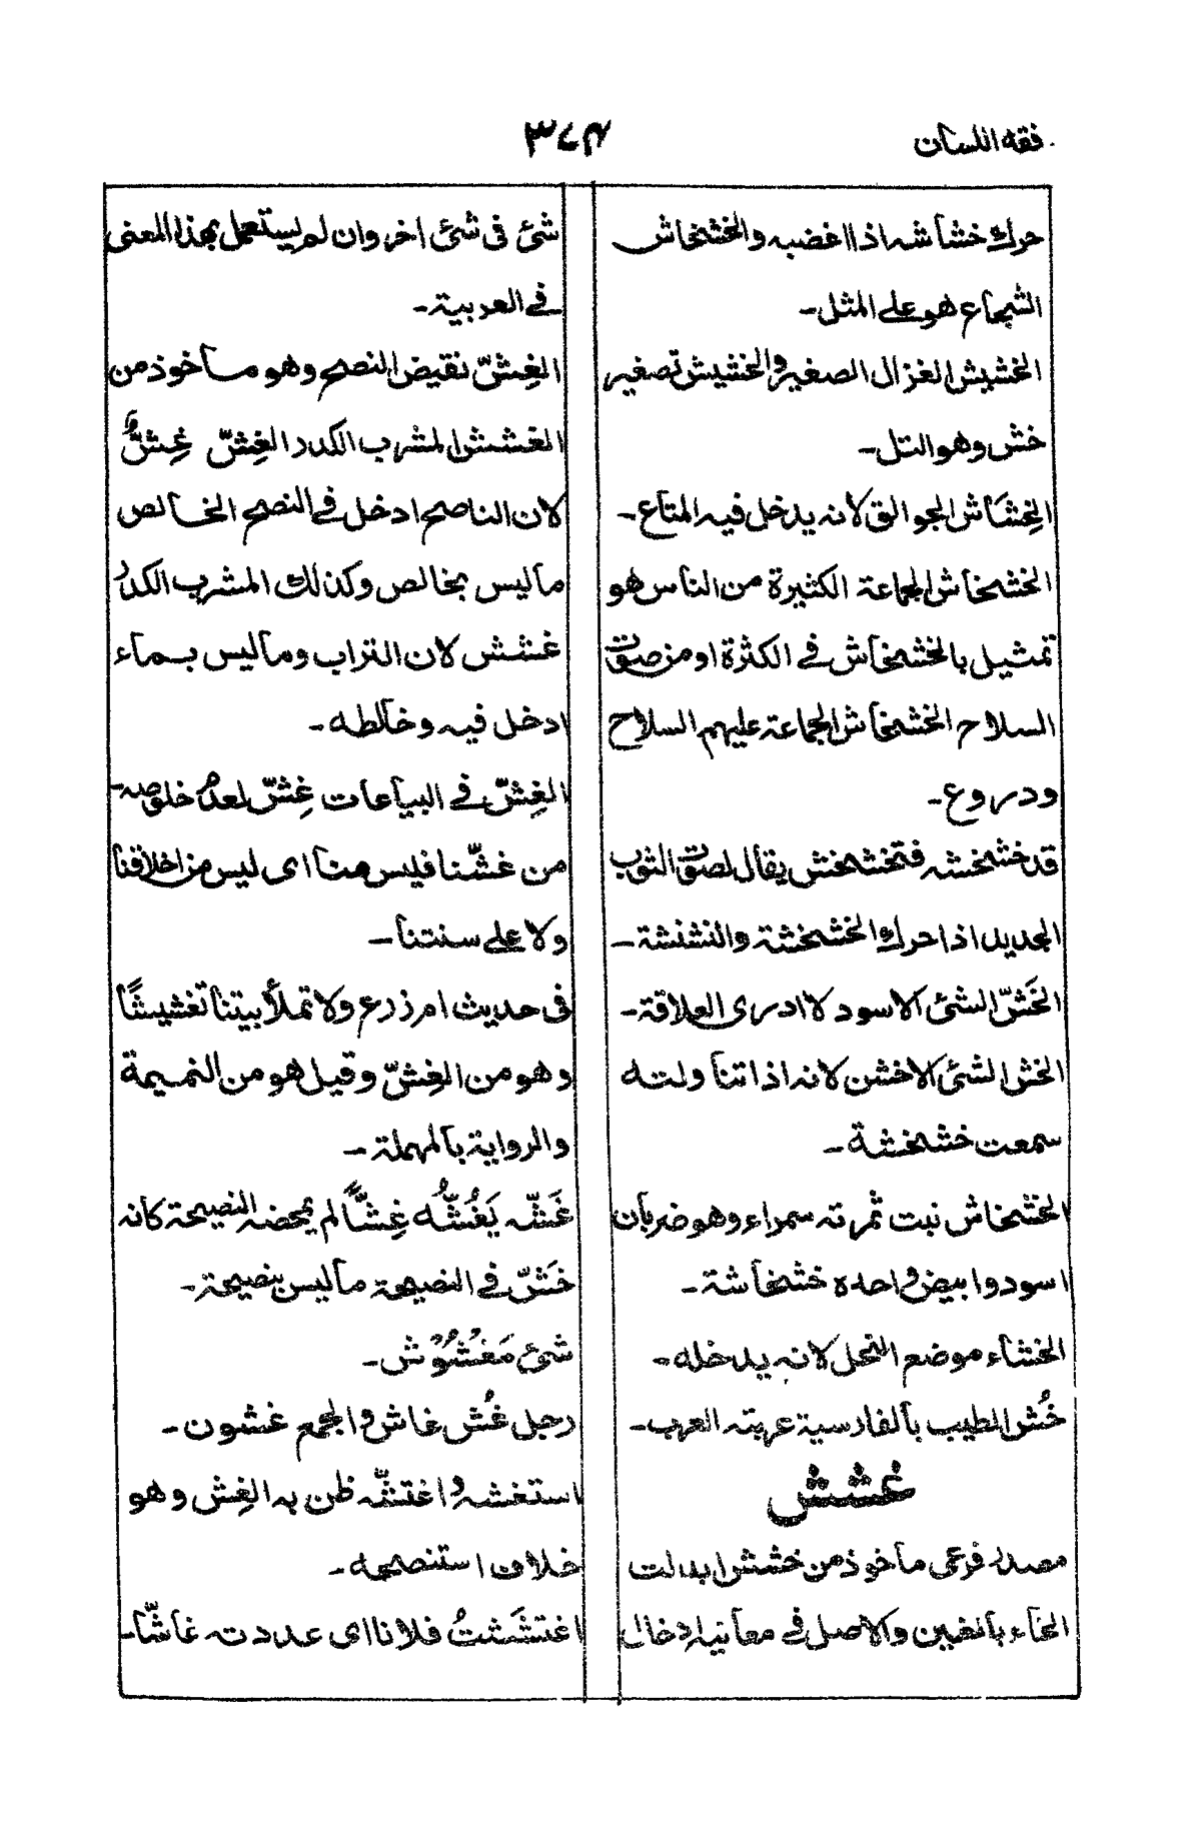 فقه اللسان
٣٧٤
حرك خشاشه اذا اغضبه والخشخاش
الشجاع هو على المثل۔
الخشيش الغزال الصغير والخشيش تصغير
خش وهو التل۔
الخِشَاش الجوالق لانه يدخل فيه المتاع۔
الخشخاش الجماعة الكثيرة من الناس هو
تمثيل بالخشخاش فى الكثرة او من صوت
السلاح الخشخاش الجماعة عليهم السلاح
ودروع۔
قد خشخشه فتخشخش يقال لصوت الثوب
الجديد اذا حرك الخشخشة والنشنشة۔
الخَشّ الشئ الاسود لا ادرى العلاقة۔
الخش الشئ الاخشن لانه اذا تناولته
سمعت خشخشة۔
الخشخاش نبت ثمرته سمراء وهو ضربان
اسود وابيض واحده خشخاشة۔
الخشاء موضع النحل لانه يدخله۔
خُش الطيب بالفارسية عربته العرب۔
غشش
مصدر فرعى ماخوذ من خشش ابدلت
الخاء بالغين والاصل فى معانيه ادخال
شئ فى شئ اخر وان لم يستعمل بهذا المعنى
فى العربية۔
الغِشّ نقيض النصح وهو ماخوذ من
الغشش المشرب الكدر الغِشّ غِشٌّ
لان الناصح ادخل فى النصح الخالص
ما ليس بخالص وكذلك المشرب الكدر
غشش لان التراب وما ليس بماء
ادخل فيه وخالطه۔
الغِشّ فى البياعات غِشّ لعدم خلوصه۔
من غشّنا فليس منا اى ليس من اخلاقنا
ولا على سنتنا۔
فى حديث ام زرع ولا تملأ بيتنا تغشيشًا
وهو من الغِشّ وقيل هو من النميمة
والرواية بالمهملة۔
غَشّه يَغُشُّه غِشًّا لم يمحضه النصيحة كانه
خَشّ فى النصيحة ما ليس بنصيحة۔
شئ مَغشُوش۔
رجل غُش غاش والجمع غشون۔
استغشه واغتشّه ظن به الغِش وهو
خلاف استنصحه۔
اغتشَشتُ فلانا اى عددته غاشّا۔